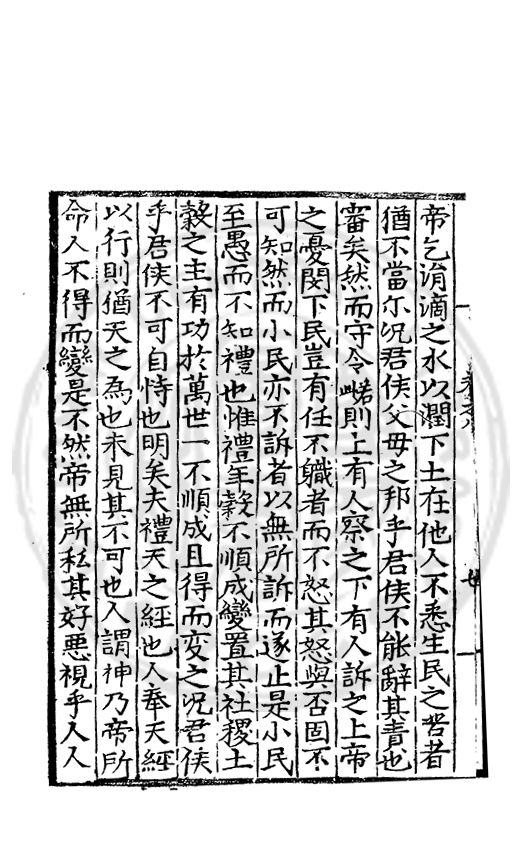 帝乞涓滴之水以潤下土在他人不悉生民之苦者
猶不當尓况君侯父母之邦乎君侯不能辭其責也
審矣然而守令 則上有人察之下有人訴之上帝
之憂閔下民豈有任不職者而不怒其怒與否固不
可知然而小民亦不訴者以無所訴而遂止是小民
至愚而不知禮也惟禮年穀不順成變置其社稷土
榖之主有功於萬世一不順成且得而变之况君侯
乎君侯不可自恃也明矣夫禮天之經也人奉天經
以行則猶天之為也未見其不可也人謂神乃帝所
命人不得而變是不然帝無所私其好惡視乎人人